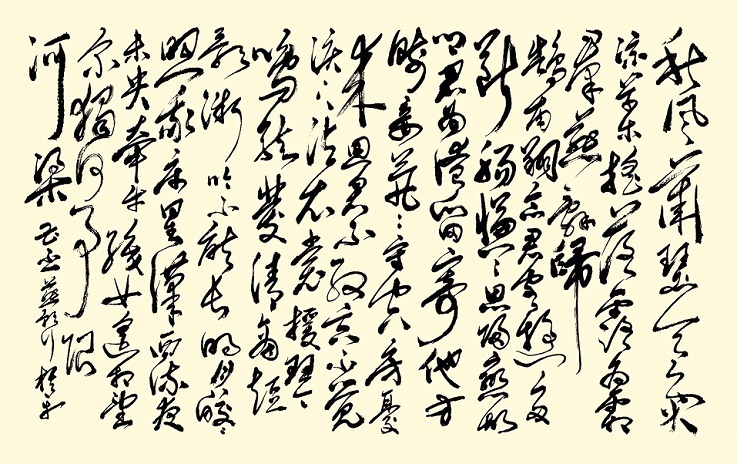 秋風蕭瑟天氣
涼草木搖落露為霜
群燕辭歸
鵠南翔念君客遊思
斷腸慊慊思歸戀故
鄉君為淹留寄他方
賤妾茕茕守空房憂
來思君不敢忘不覺
淚下沾衣裳援琴
鳴弦發清商短
歌微吟不能長明月皎皎
照我床星漢西流夜
未央牽牛織女遙相望
爾獨何辜限
河梁 曹丕燕歌行